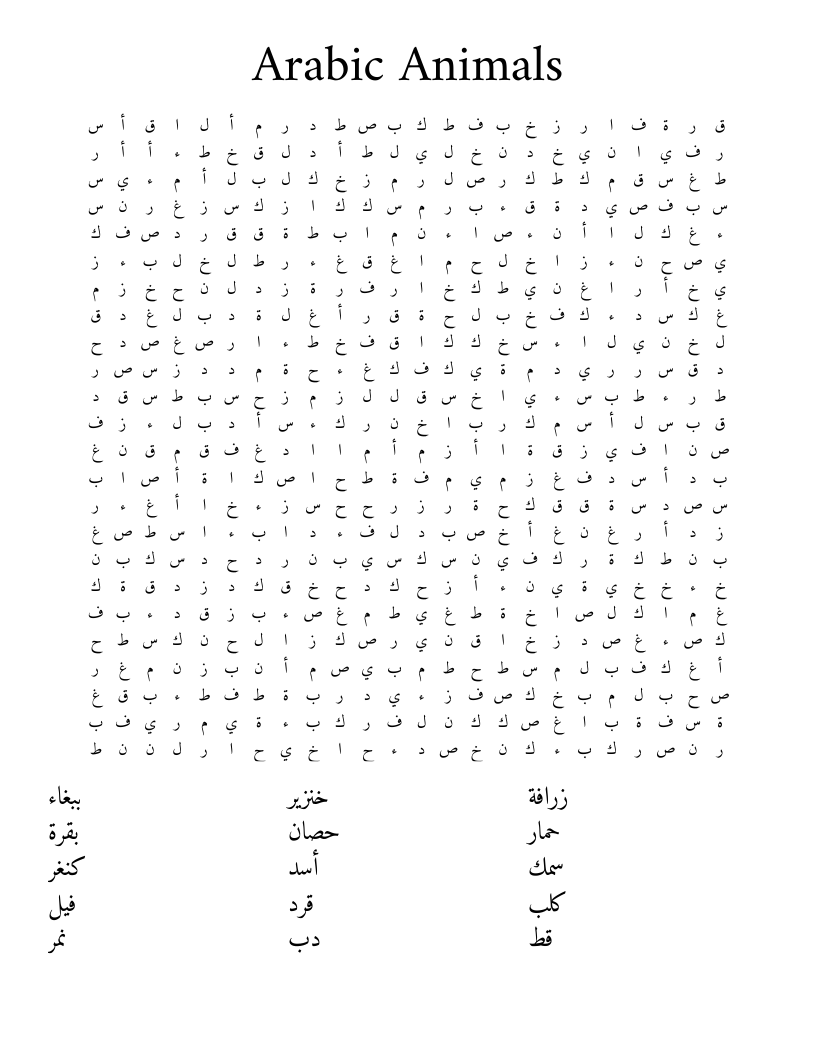 Arabic Animals
ق ر ة ف ا ر ز خ ب ف ط ك ب ص ط د ر م أ ل ا ق أ س
ر ف ي ا ن ي خ د ن خ ل ي ل ط أ د ل ق خ ط ء أ أ ر
ط غ س ق م ك ط ك ر ص ل ر م ز خ ك ل ب ل أ م ء ي س
س ب ف ص ي د ة ق ء ب ر م س ك ك ا ز ك س ز غ ر ن س
ء غ ك ل ا أ ن ء ص ا ء ن م ا ب ط ة ق ق ر د ص ف ك
ي ص ح ن ء ز ا خ ل ح م ا غ ق غ ء ر ط ل خ ل ب ء ز
ي خ أ ر ا غ ن ي ط ك خ ا ر ف ر ة ز د ل ن ح خ ز م
غ ك س د ء ك ف خ ب ل ح ة ق ر أ غ ل ة د ب ل غ د ق
ل خ ن ي ل ا ء س خ ك ك ا ق ف خ ط ء ا ر ص غ ص د ح
د ق س ر ر ي د م ة ي ك ف ك غ ء ح ة م د د ز س ص ر
ط ر ء ط ب س ء ي ا خ س ق ل ل ز م ز ح س ب ط س ق د
ق ب س ل أ س م ك ر ب ا خ ن ر ك ء س أ د ب ل ء ز ف
ص ن ا ف ي ز ق ة ا أ ز م أ م ا ا د غ ف ق م ق ن غ
ب د أ س د ف غ ز م ي م ف ة ط ح ا ص ك ا ة أ ص ا ب
س ص د س ة ق ق ك ح ة ر ز ر ح ح س ز ء خ ا أ غ ء ر
ز د أ ر غ ن غ أ خ ص ب د ل ف ء د ا ب ء ا س ط ص غ
ب ن ط ك ة ر ك ف ي ن س ك س ي ب ن ر د ح د س ك ب ن
خ ء خ خ ي ة ي ن ء أ ز ح ك د ح خ ق ك د ز د ق ة ك
غ م ا ك ل ص ا خ ة ط غ ي ط م غ ص ء ب ز ق د ء ب ف
ك ص ء غ ص د ز خ ا ق ن ي ر ص ك ز ا ل ح ن ك س ط ح
أ غ ك ف ب ل م س ط ح ط م ب ي ص م أ ن ب ز ن م غ ر
ص ح ب ل م ب خ ك ص ف ز ء ي د ر ب ة ط ف ط ء ب ق غ
ة س ف ة ب ا غ ص ك ك ن ل ف ر ك ب ء ة ي م ر ي ف ب
ر ن ص ر ك ب ء ك ن خ ص د ء ح ا خ ي ح ا ر ل ن ن ط
زرافة خنزير ببغاء
حمار حصان بقرة
سمك أسد كنغر
كلب قرد فيل
قط دب نمر